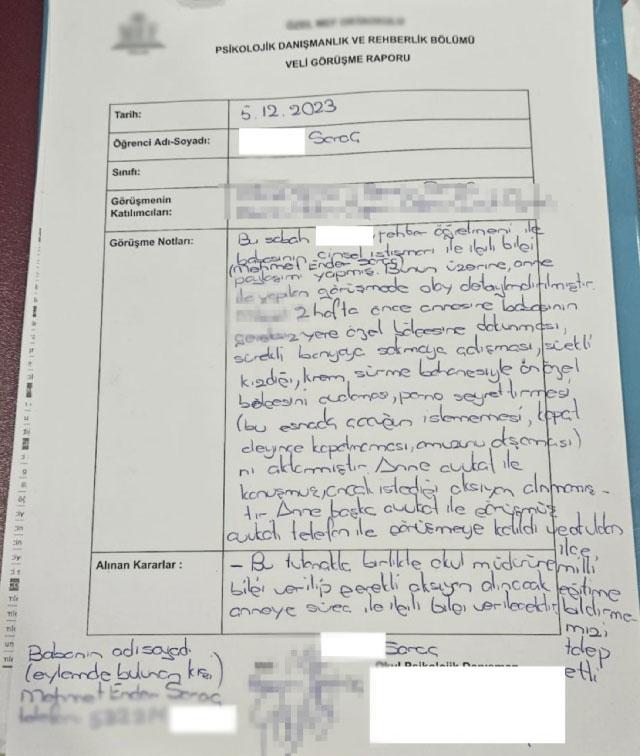 PSİKOLOJİK DANIŞMANLIK VE REHBERLİK BÖLÜMÜ
VELİ GÖRÜŞME RAPORU
Tarih: 5.12.2023
Öğrenci Adı-Soyadı: Saraç
Sınıfı:
Görüşmenin Katılımcıları:
Görüşme Notları: Bu sabah rehber öğretmeni ile
babasının cinsel istismarı ile ilgili bilgi
(Mehmet Ender Saraç)
paylaşımı yapmış. Bunun üzerine, anne
ile yapılan görüşmede olay detaylandırılmıştır.
2 hafta önce annesine babasının
gereksiz yere özel bölgesine dokunması,
sürekli banyoya sokmaya çalışması, sürekli
kızdığı, krem sürme bahanesiyle ön özel
bölgesini, porno seyrettirmesi
(bu esnada çocuğun istememesi, kapat
deyince kapatmaması,)
nı aktarmıştır. Anne avukat ile
konuşmuş, ancak istediği aksiyon alınmamış-
tır. Anne başka avukat ile görüşmüş
avukat telefon ile görüşmeye katıldı ve okuldan
ilçe
milli
eğitime
bildirme-
mizi
talep
etti
Alınan Kararlar : - Bu tutanakla birlikte okul müdürüne
bilgi verilip gerekli aksiyon alınacak
anneye süreç ile ilgili bilgi verilecektir.
Babanın adı soyadı
(eylemde bulunan kişi)
Mehmet Ender Saraç
telefon
Saraç